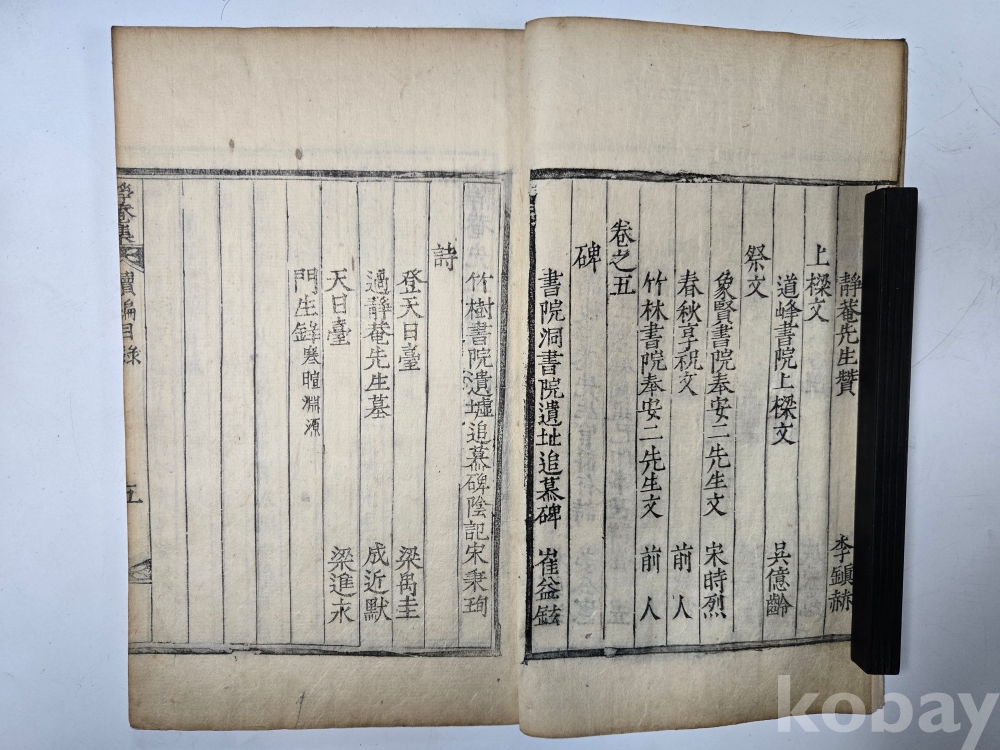 靜菴先生贊 李鎭赫
上樑文
道峰書院上樑文 吳億齡
祭文
象賢書院奉安二先生文 宋時烈
春秋享祝文 前人
竹林書院奉安二先生文 前人
卷之五
碑
書院洞書院遺址追慕碑 崔益鉉
竹樹書院遺墟追慕碑陰記 宋秉珣
詩
登天日臺 梁禹圭
過靜菴先生墓 成近默
天日臺 梁進永
門生錄 寒暄淵源
靜菴集 續編目錄 五
kobay